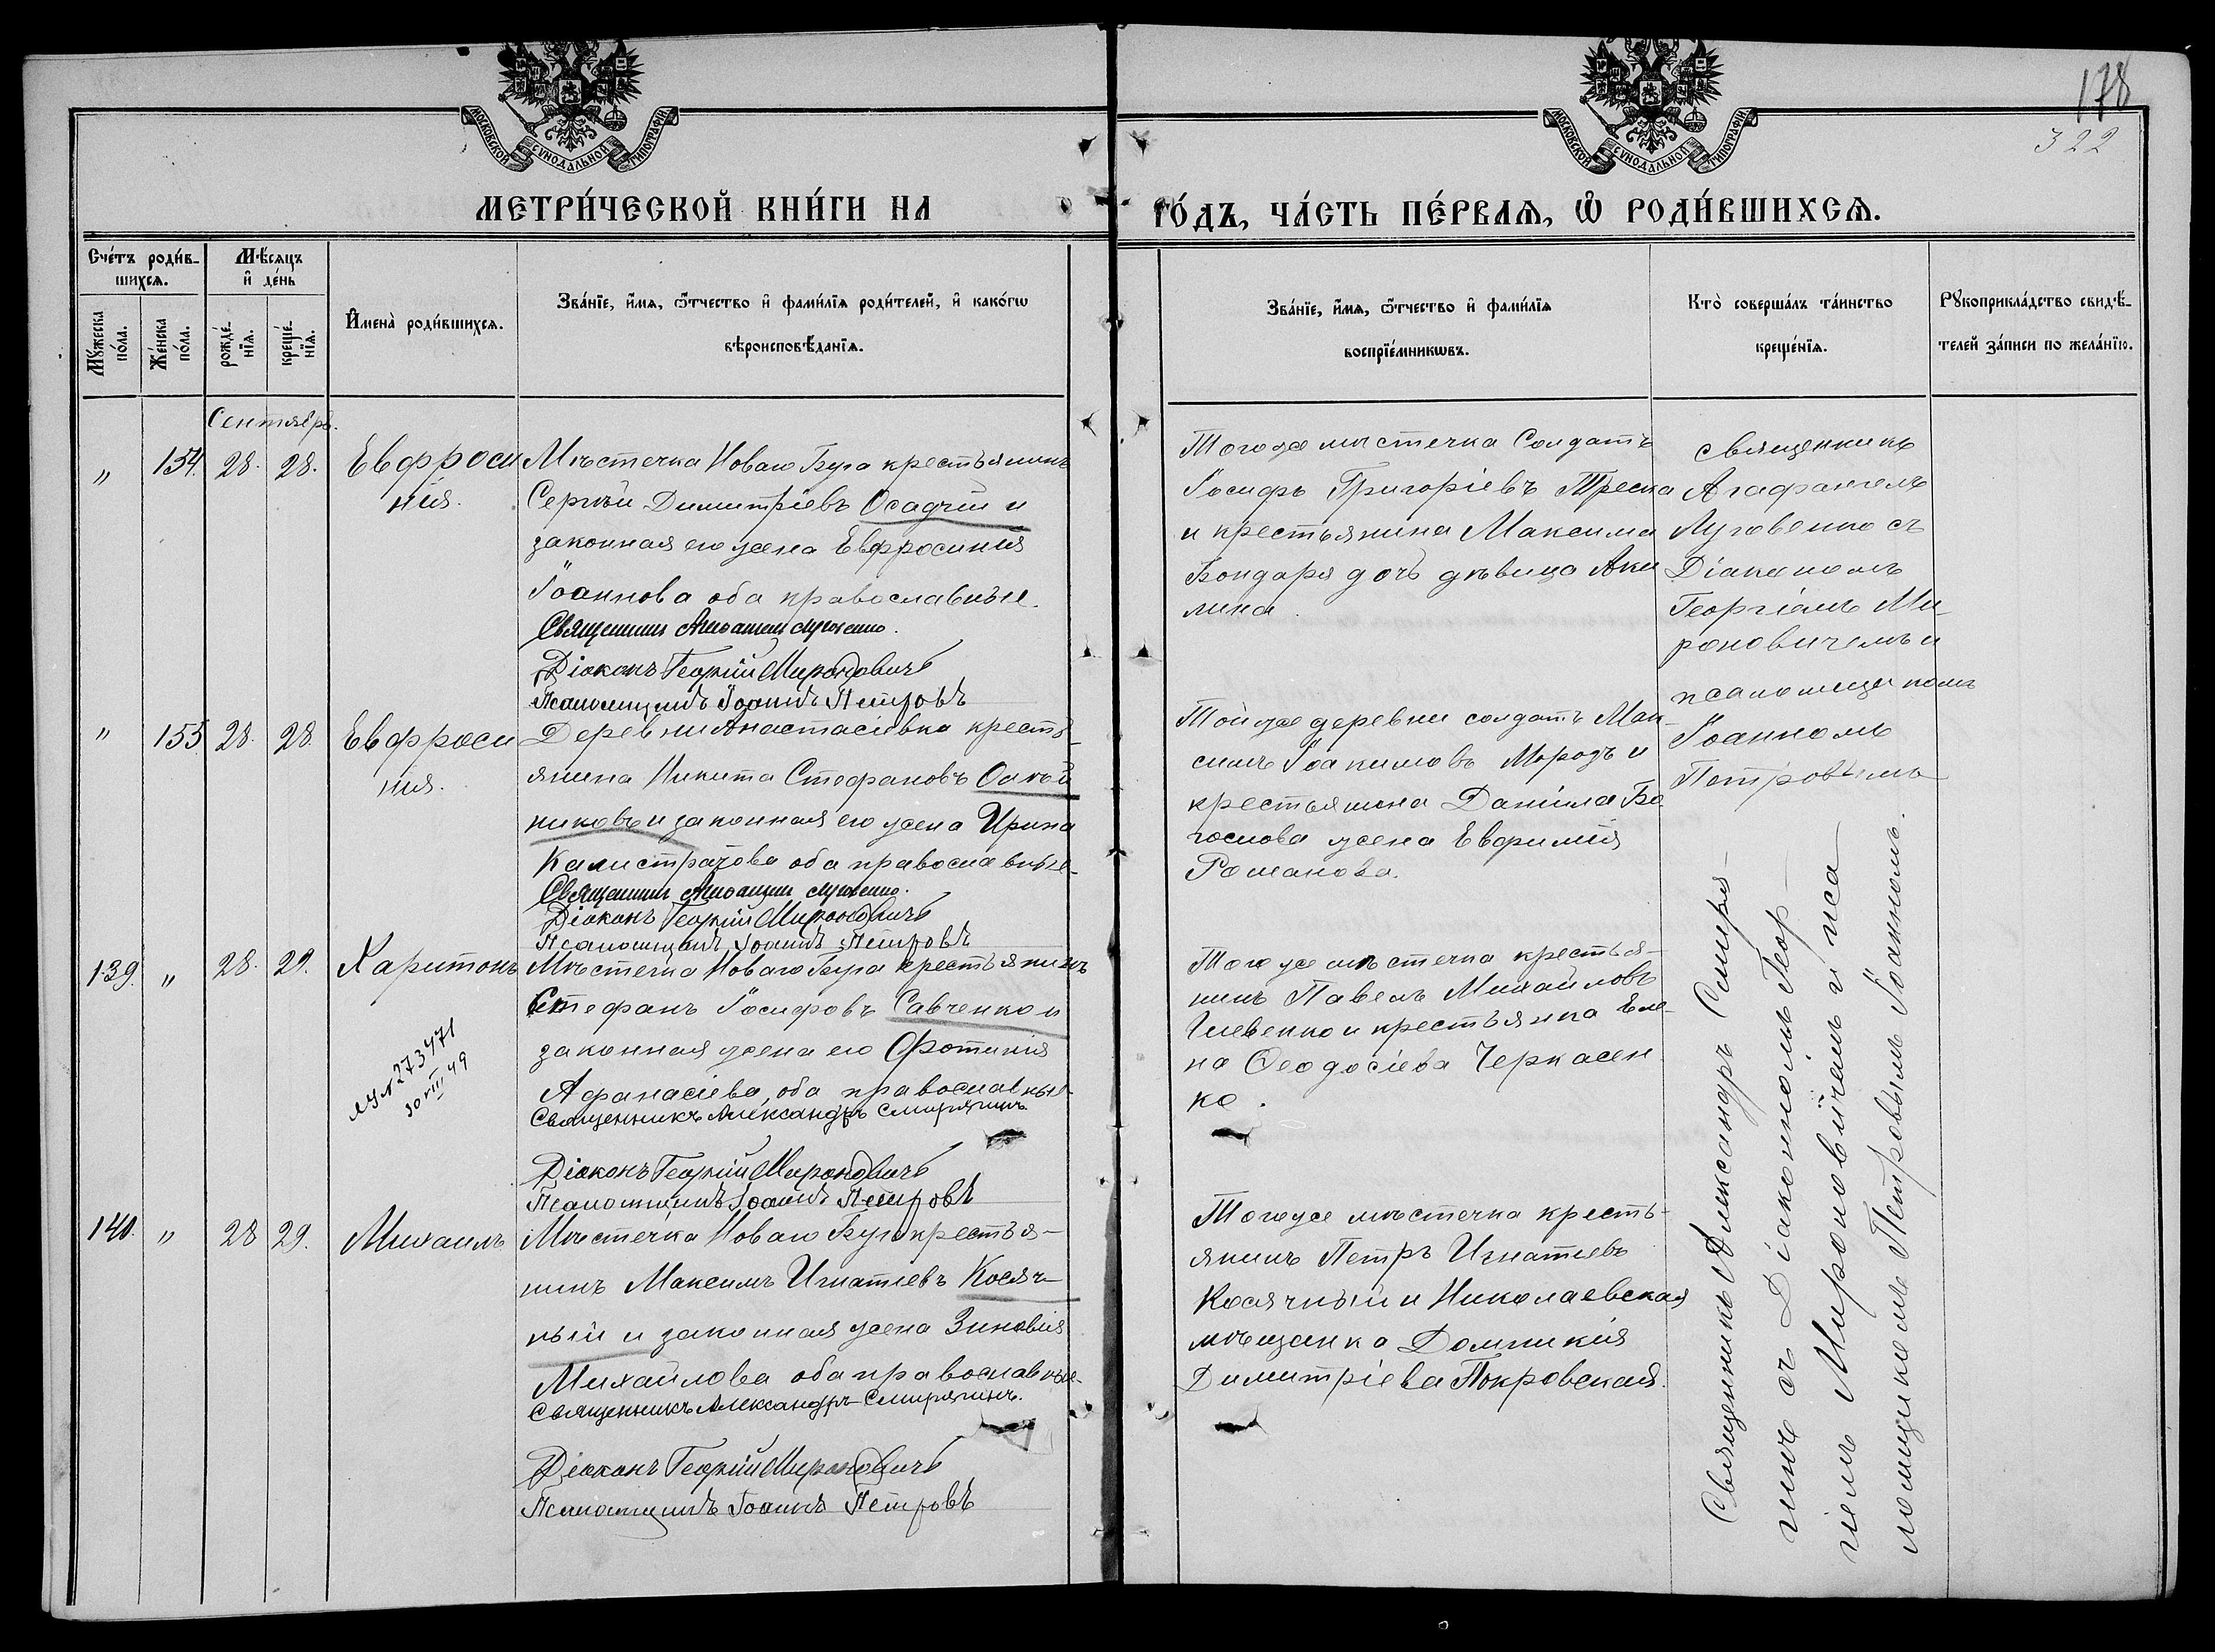 МОСКОВСКОЙ СѴНОДАЛЬНОЙ ТИПОГРАФІИ
МОСКОВСКОЙ СѴНОДАЛЬНОЙ ТИПОГРАФІИ
178
322
МЕТРИ́ЧЕСКОЙ КНИ́ГИ НА
ГО́ДЪ, ЧА́СТЬ ПЕ́РВАѦ, Ѡ҆ РОДИ́ВШИХСѦ.
Сче́тъ роди́в-
шихсѧ.
Мѣ́сяцъ
и҆ де́нь
Мꙋ́жеска
по́ла.
Же́нска
по́ла.
рожде́-
нїѧ.
креще́-
нїѧ.
И҆мена̀ роди́вшихсѧ.
Зва́нїе, и҆́мѧ, ѻ҆́тчество и҆ фами́лїѧ роди́телей, и҆ како́гѡ
вѣроисповѣ́данїѧ.
Зва́нїе, и҆́мѧ, ѻ҆́тчество и҆ фами́лїѧ
воспрїе́мникѡвъ.
Кто̀ соверша́лъ та́инство
креще́нїѧ.
Рꙋкоприкла́дство свидѣ́-
телей за́писи по жела́нїю.
Сентябрь.
" 154. 28. 28. Евфроси
нія.
Мѣстечка Новаго Буга крестьянинъ
Сергѣй Димитріевъ Осадчій и
законная его жена Евфросинія
Іоаннова оба православные.
Священникъ
Діаконъ Георгій Мироновичъ
Псаломщикъ Іоаннъ Петровъ
Тогоже мѣстечка Солдатъ
Іосифъ Григоріевъ Треска
и крестьянина Максима
Бондаря дочь дѣвица Аки
лина.
Священникъ
Агафангелъ
Луговенко съ
Діакономъ
Георгіемъ Ми
роновичемъ и
псаломщикомъ
Іоанномъ
Петровымъ
" 155 28. 28. Евфроси
нія.
Деревни Анастасіевки кресть-
янина Никита Стефановъ Олей
никовъ и законная его жена Ирина
Калистратова оба православные.
Священникъ
Діаконъ Георгій Мироновичъ
Псаломщикъ Іоаннъ Петровъ
Тойже деревни солдатъ Мак-
симъ Іоакимовъ Морозъ и
крестьянина Даніила Бо
гослова жена Евфимія
Романова.
139. " 28. 29. Харитонъ
273471
30 VIII 49
Мѣстечка Новаго Буга крестьянинъ
Стефанъ Іосифовъ Савченко и
законная жена его Фотинія
Афанасіева, оба православные.
Священникъ Александръ Смирягинъ
Діаконъ Георгій Мироновичъ
Псаломщикъ Іоаннъ Петровъ
Того же мѣстечка крестья-
нинъ Павелъ Михайловъ
и крестьянка Еле-
на Ѳеодосіева Черкасен
ко.
140. " 28 29. Михаилъ
Мѣстечка Новаго Буга крестья-
нинъ Максимъ Игнатіевъ Косяч-
ный и законная жена Зиновія
Михайлова оба православные.
Священникъ Александръ Смирягинъ.
Діаконъ Георгій Мироновичъ
Псаломщикъ Іоаннъ Петровъ
Тогоже мѣстечка кресть-
янинъ Петръ Игнатіевъ
Косячный и Николаевская
мѣщанка Домникія
Димитріева Покровская.
Священникъ Александръ Смиря-
гинъ съ Діакономъ Геор-
гіемъ Мироновичемъ и пса
ломщикомъ Петровымъ Іоанномъ.